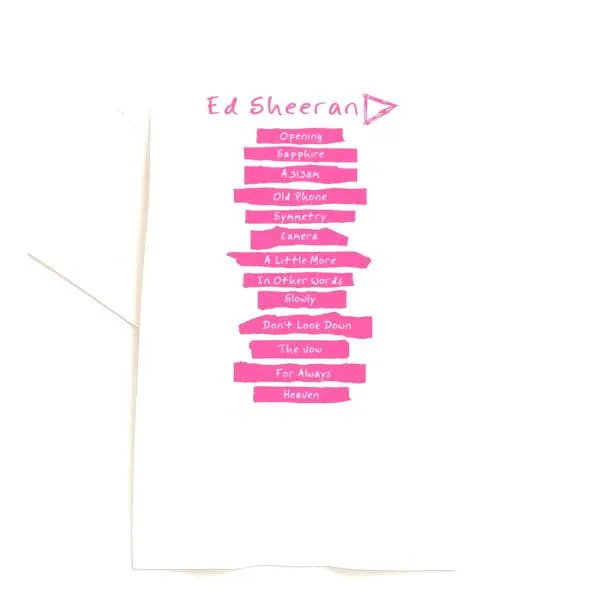 Ed Sheeran
Opening
Sapphire
A313am
Old Phone
Symmetry
Camera
A Little More
In Other Words
Slowly
Don't Look Down
The Vow
For Always
Heaven